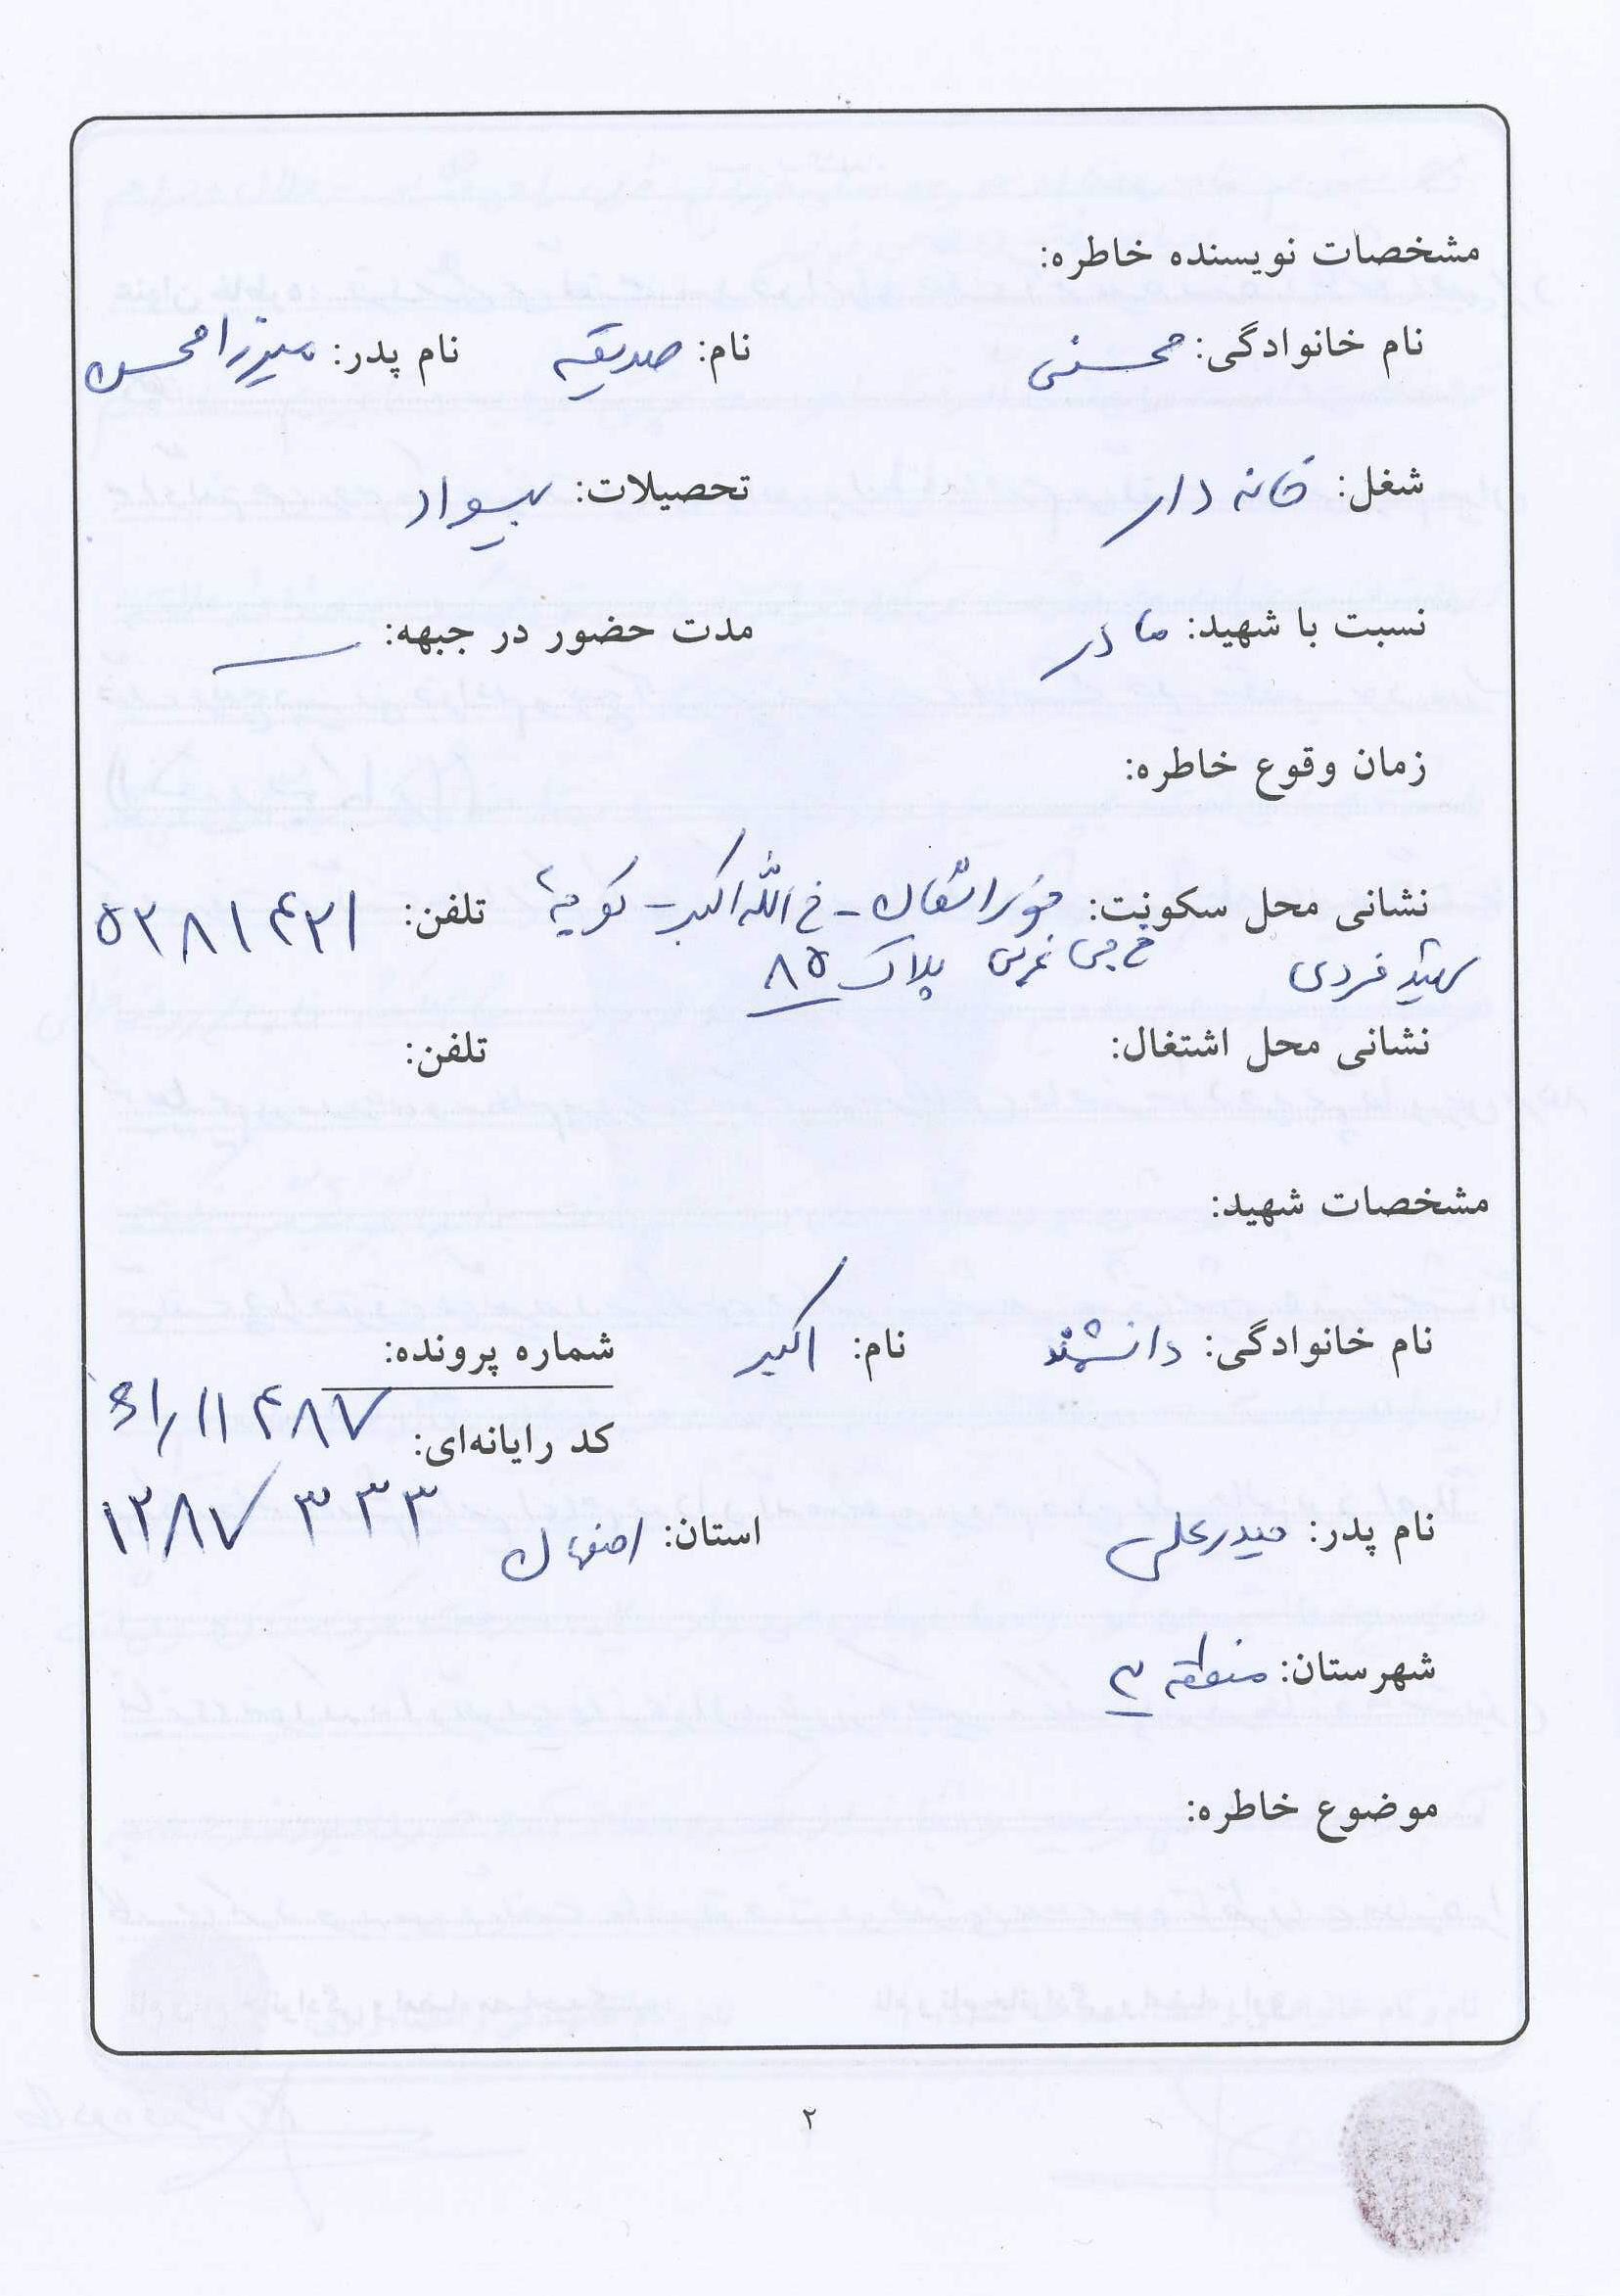 مشخصات نویسنده خاطره:
نام خانوادگی: محسنی نام: صدیقه نام پدر: میرزا محسن
شغل: خانه دار تحصیلات: بیسواد
نسبت با شهید: مادر مدت حضور در جبهه: ـــ
زمان وقوع خاطره:
نشانی محل سکونت: خوراسگان - خ الله اکبر - کوچه تلفن: ۵۲۸۱۴۲۱
شهید فردی خ جی غربی پلاک ۸۵
نشانی محل اشتغال: تلفن:
مشخصات شهید:
نام خانوادگی: دانشمند نام: اکبر شماره پرونده:
۶۱/۱۱۴۸۷
کد رایانه‌ای:
۱۲۸۷۳۳۳
نام پدر: حیدرعلی استان: اصفهان
شهرستان: منطقه ۳
موضوع خاطره:
۲